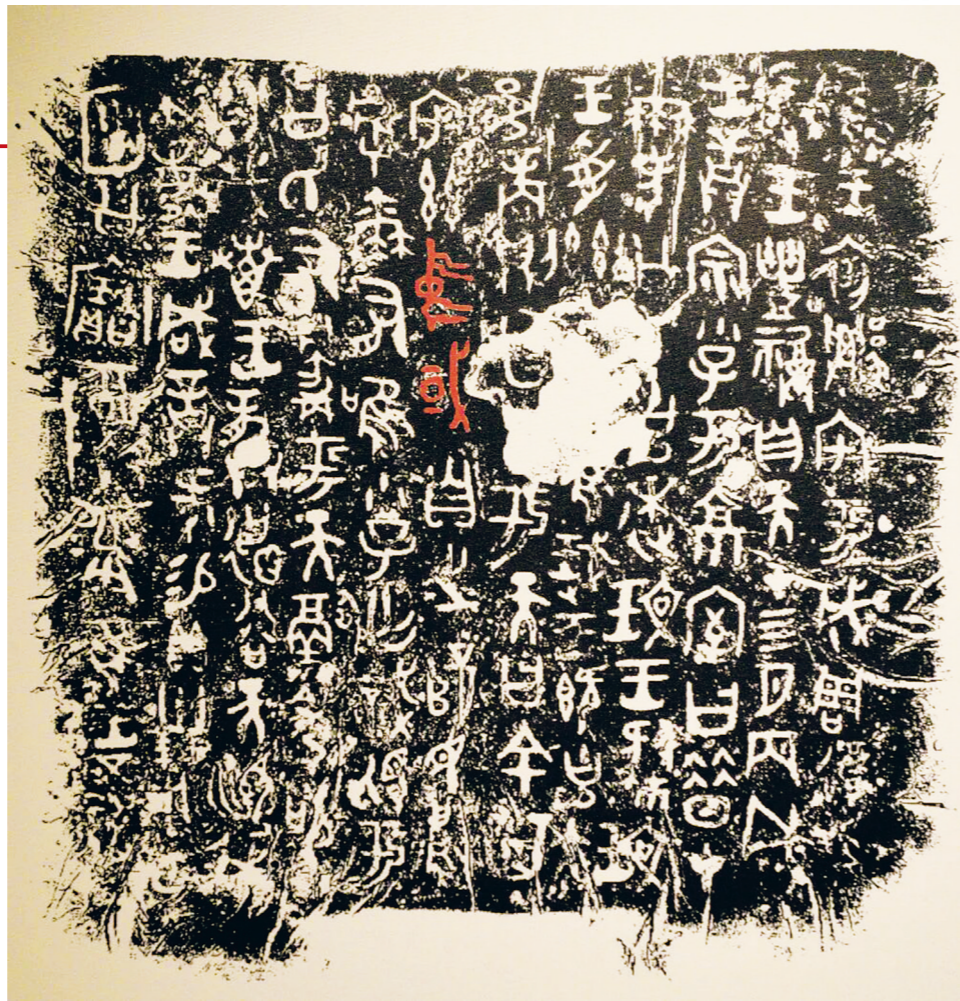 隹王初遷宅于成周復爯
珷王豊祼自天才四月丙戌
王誥宗小子于京室曰昔才
爾考公氏克逨玟王肄玟
王受茲大令隹珷王既克大
邑商則廷告于天曰余其
宅茲中或自之乂民烏
虖爾有唯小子亡識視于
公氏有爵于天徹令敬
享哉叀王恭德谷天順我
不敏王咸誥何易貝卅朋用乍
公寶尊彝隹王五祀